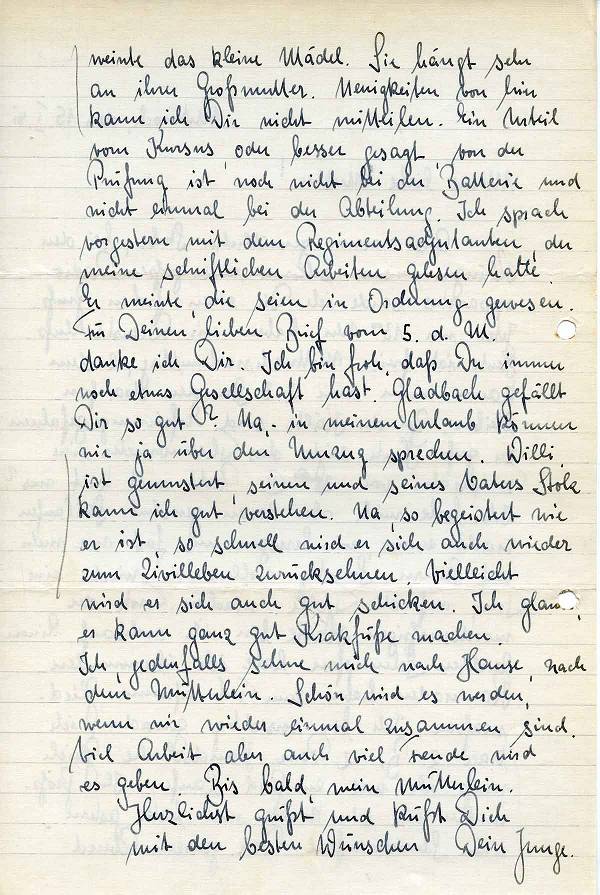 weinte das kleine Mädel. Sie hängt sehr
an ihrer Großmutter. Neuigkeiten von hier
kann ich Dir nicht mitteilen. Ein Urteil
vom Kursus, oder besser gesagt, von der
Prüfung ist noch nicht bei der Batterie und
nicht einmal bei der Abteilung. Ich sprach
vorgestern mit dem Regimentsadjutanten, der
meine schriftlichen Arbeiten gelesen hatte.
Er meinte, die seien in Ordnung gewesen.
Für Deinen lieben Brief vom 5. d. M.
danke ich Dir. Ich bin froh, daß Du immer
noch etwas Gesellschaft hast. Gladbach gefällt
Dir so gut? Na,- in meinem Urlaub können
wir ja über den Umzug sprechen. Willi
ist gemustert, seinen und seines Vaters Stolz
kann ich gut verstehen. Na, so begeistert wie
er ist, so schnell wird er sich auch wieder
zum Zivilleben zurücksehnen. Vielleicht
wird er sich auch gut schicken. Ich glaube,
er kann ganz gut Kratzfüße machen.
Ich jedenfalls sehne mich nach Hause, nach
dem Mütterlein. Schön wird es werden,
wenn wir wieder einmal zusammen sind.
Viel Arbeit aber auch viel Freude wird
es geben. Bis bald, mein Mütterlein.
Herzlichst grüßt und küßt Dich
mit den besten Wünschen Dein Junge.